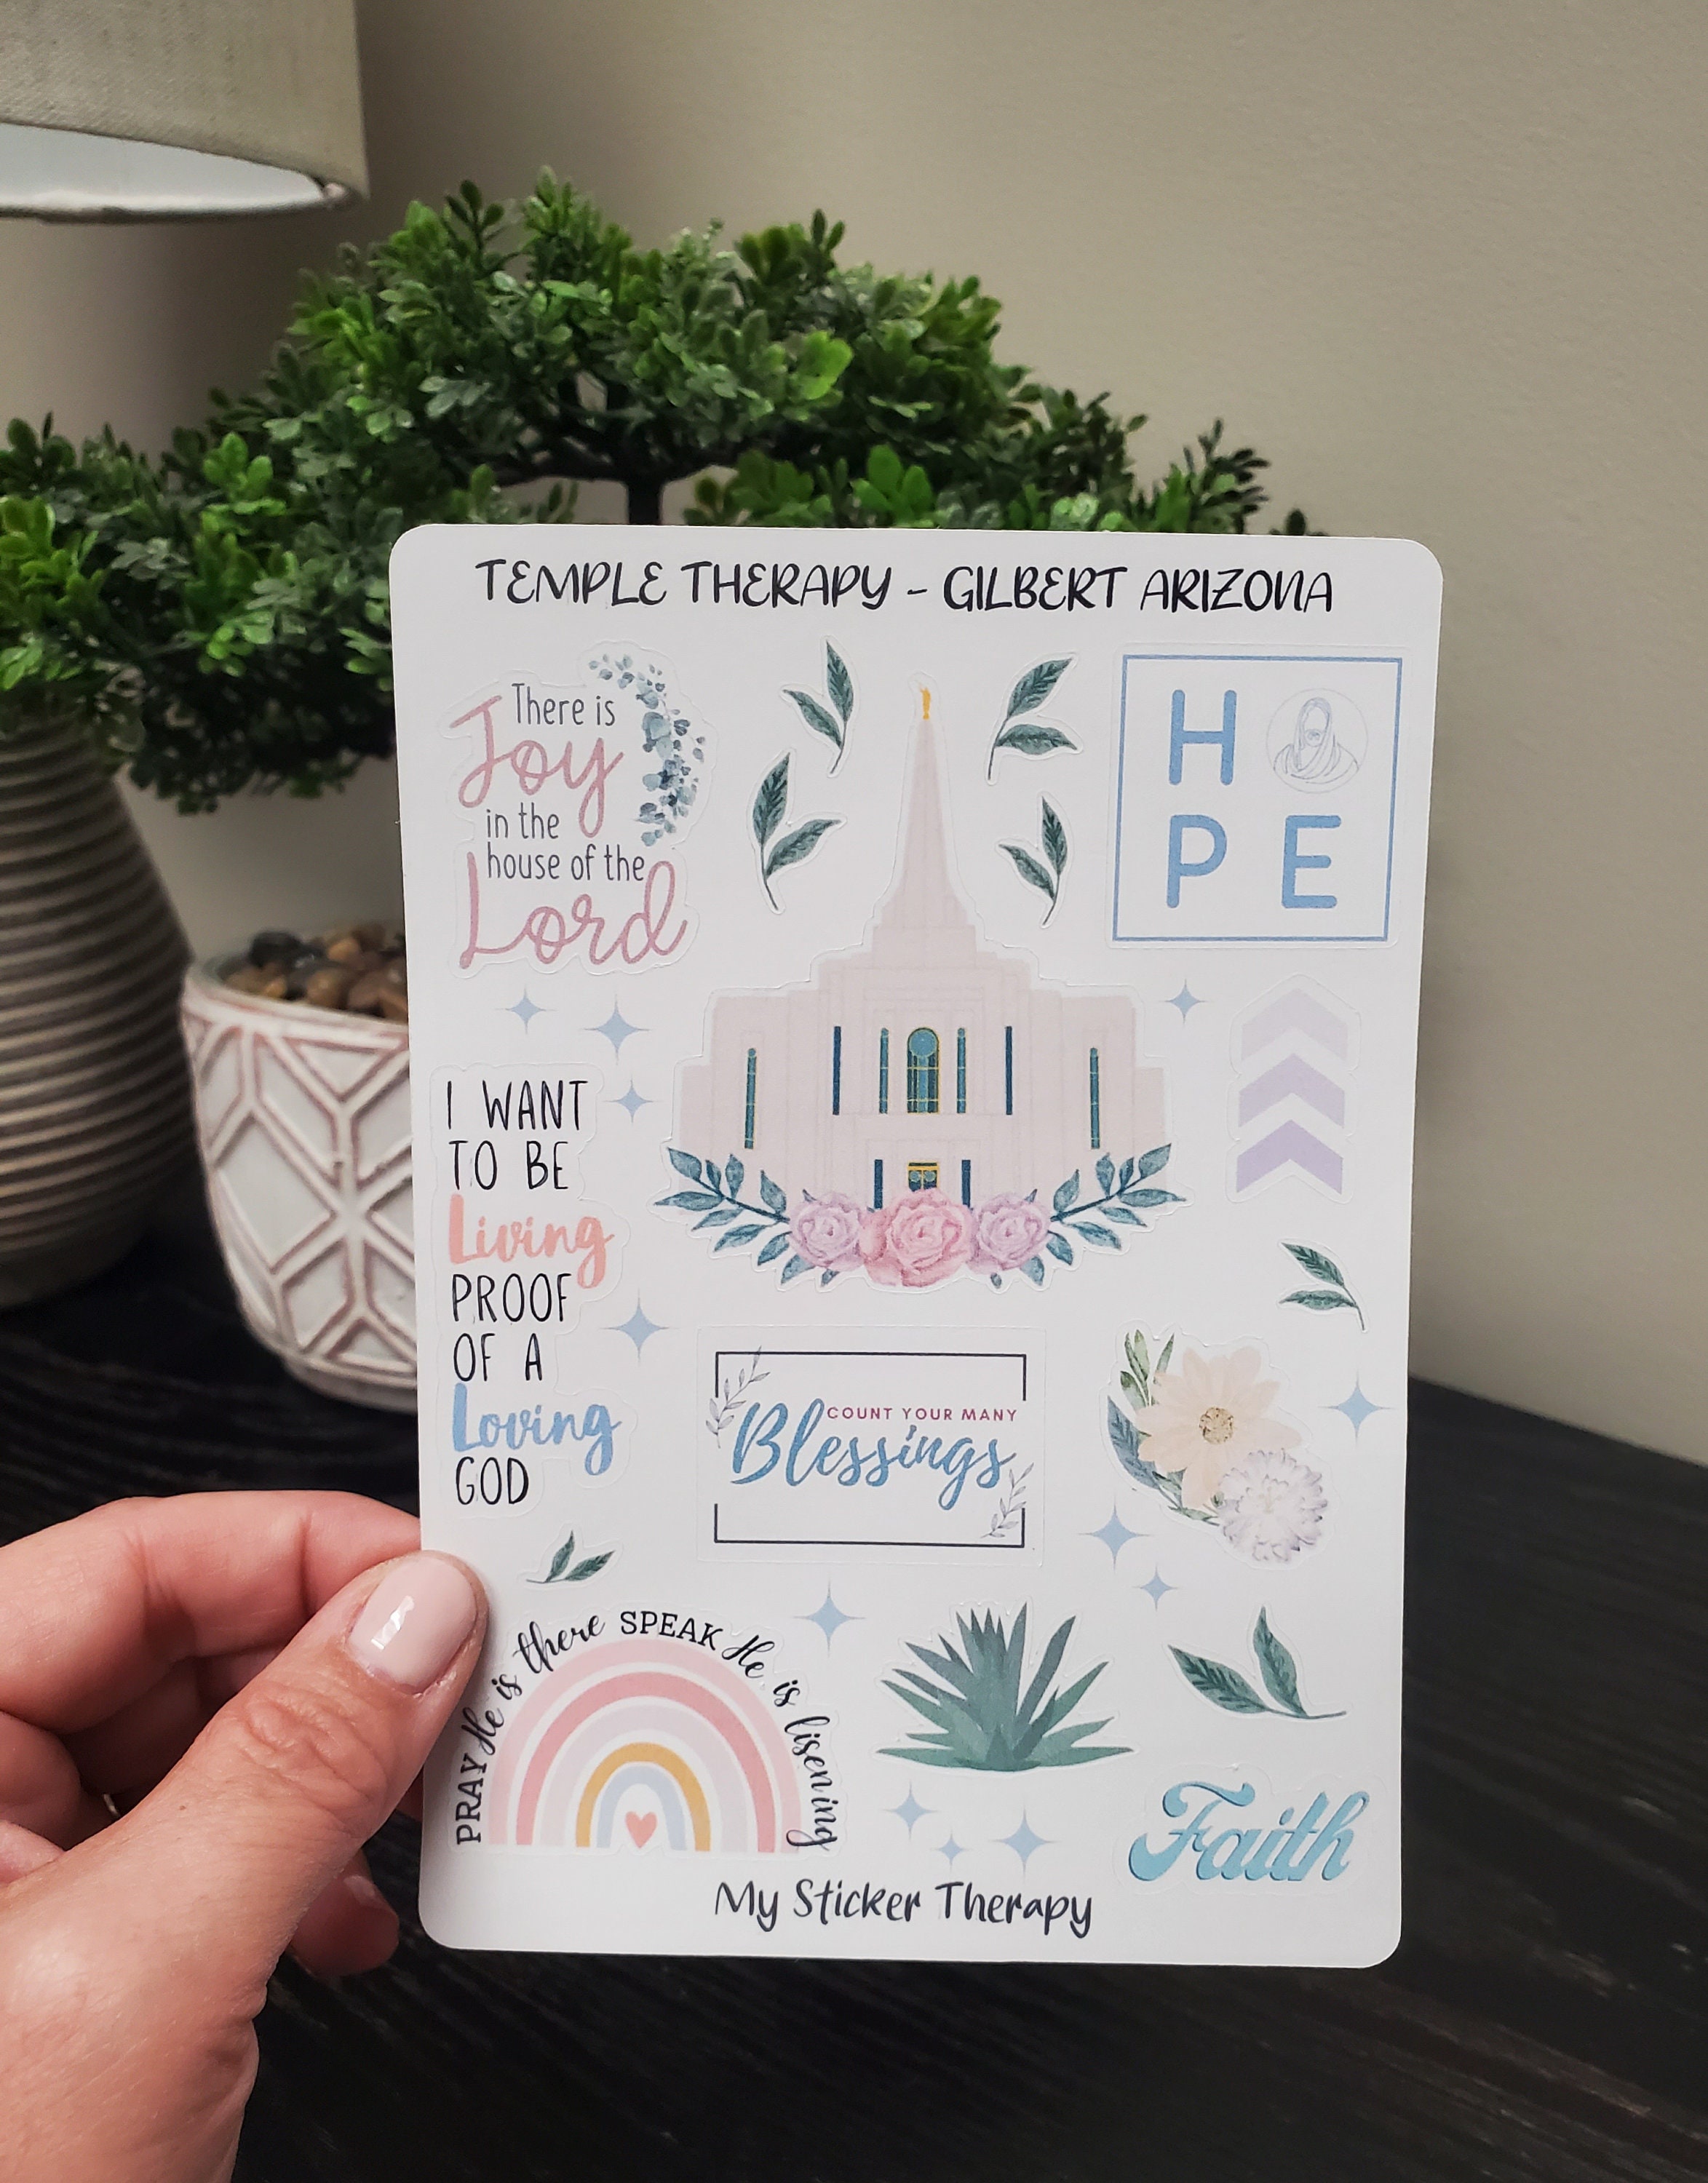 TEMPLE THERAPY - GILBERT ARIZONA
There is
Joy
in the
house of the
Lord
H
P E
I WANT
TO BE
Living
PROOF
OF A
Loving
GOD
COUNT YOUR MANY
Blessings
PRAY He is there SPEAK He is lisening
Faith
My Sticker Therapy